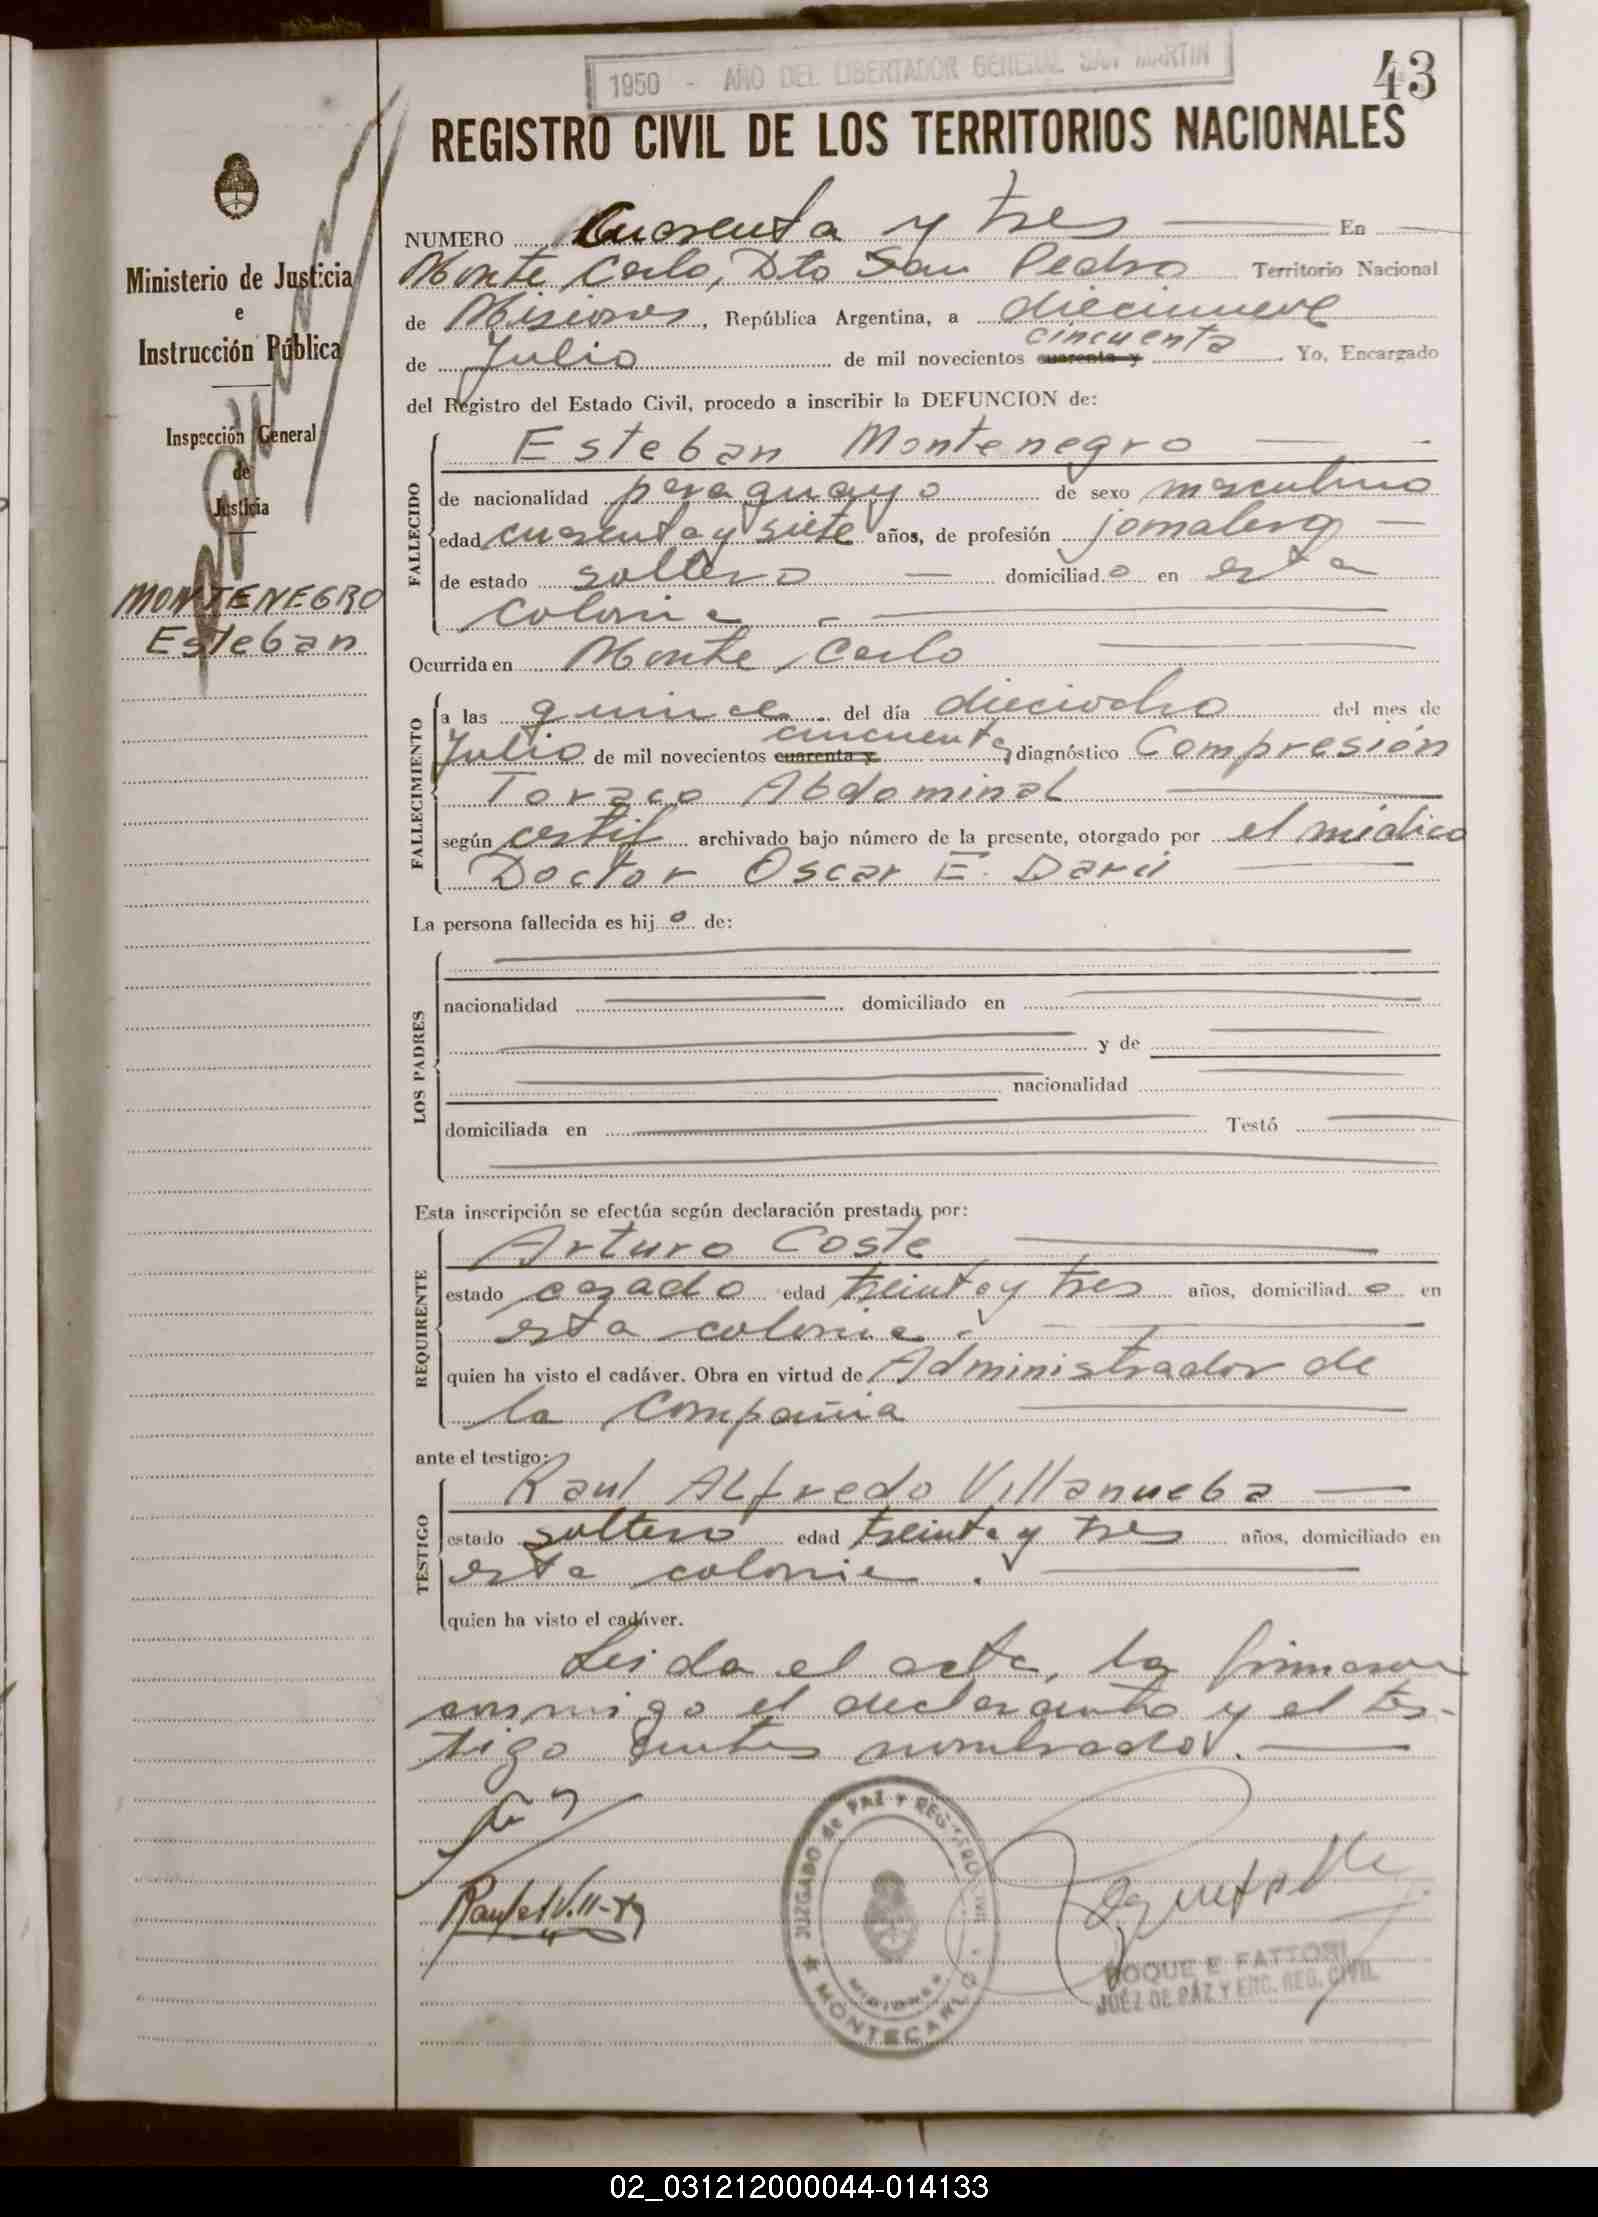 1950 - AÑO DEL LIBERTADOR GENERAL SAN MARTIN
43
REGISTRO CIVIL DE LOS TERRITORIOS NACIONALES
Ministerio de Justicia
e
Instrucción Pública
Inspección General
de
Justicia
MONTENEGRO
Esteban
NUMERO Cuarenta y tres En
Monte Carlo, Dto San Pedro Territorio Nacional
de Misiones, República Argentina, a diecinueve
cincuenta
de Julio de mil novecientos cuarenta y Yo, Encargado
del Registro del Estado Civil, procedo a inscribir la DEFUNCION de:
FALLECIDO
Esteban Montenegro
de nacionalidad paraguayo de sexo masculino
edad cuarenta y siete años, de profesión jornalero
de estado soltero domiciliado en esta
colonia
Ocurrida en Monte Carlo
FALLECIMIENTO
a las quince del día dieciocho del mes de
cincuenta
Julio de mil novecientos cuarenta y , diagnóstico Compresión
Toraco Abdominal
según certif archivado bajo número de la presente, otorgado por el médico
Doctor Oscar E. Darú
La persona fallecida es hijo de:
LOS PADRES
nacionalidad domiciliado en
y de
nacionalidad
domiciliada en Testó
Esta inscripción se efectúa según declaración prestada por:
REQUIRENTE
Arturo Coste
estado casado edad treinta y tres años, domiciliado en
esta colonia.
quien ha visto el cadáver. Obra en virtud de Administrador de
la Compañia
ante el testigo:
TESTIGO
Raul Alfredo Villanueba
estado soltero edad treinta y tres años, domiciliado en
esta colonia.
quien ha visto el cadáver.
Leida el acta, la firmaron
conmigo el declarante y el tes-
tigo antes nombrados.
JUZGADO de PAZ Y REGISTRO CIVIL
MISIONES
MONTECARLO
ROQUE E. FATTORI
JUEZ DE PAZ Y ENC. REG. CIVIL
02_031212000044-014133